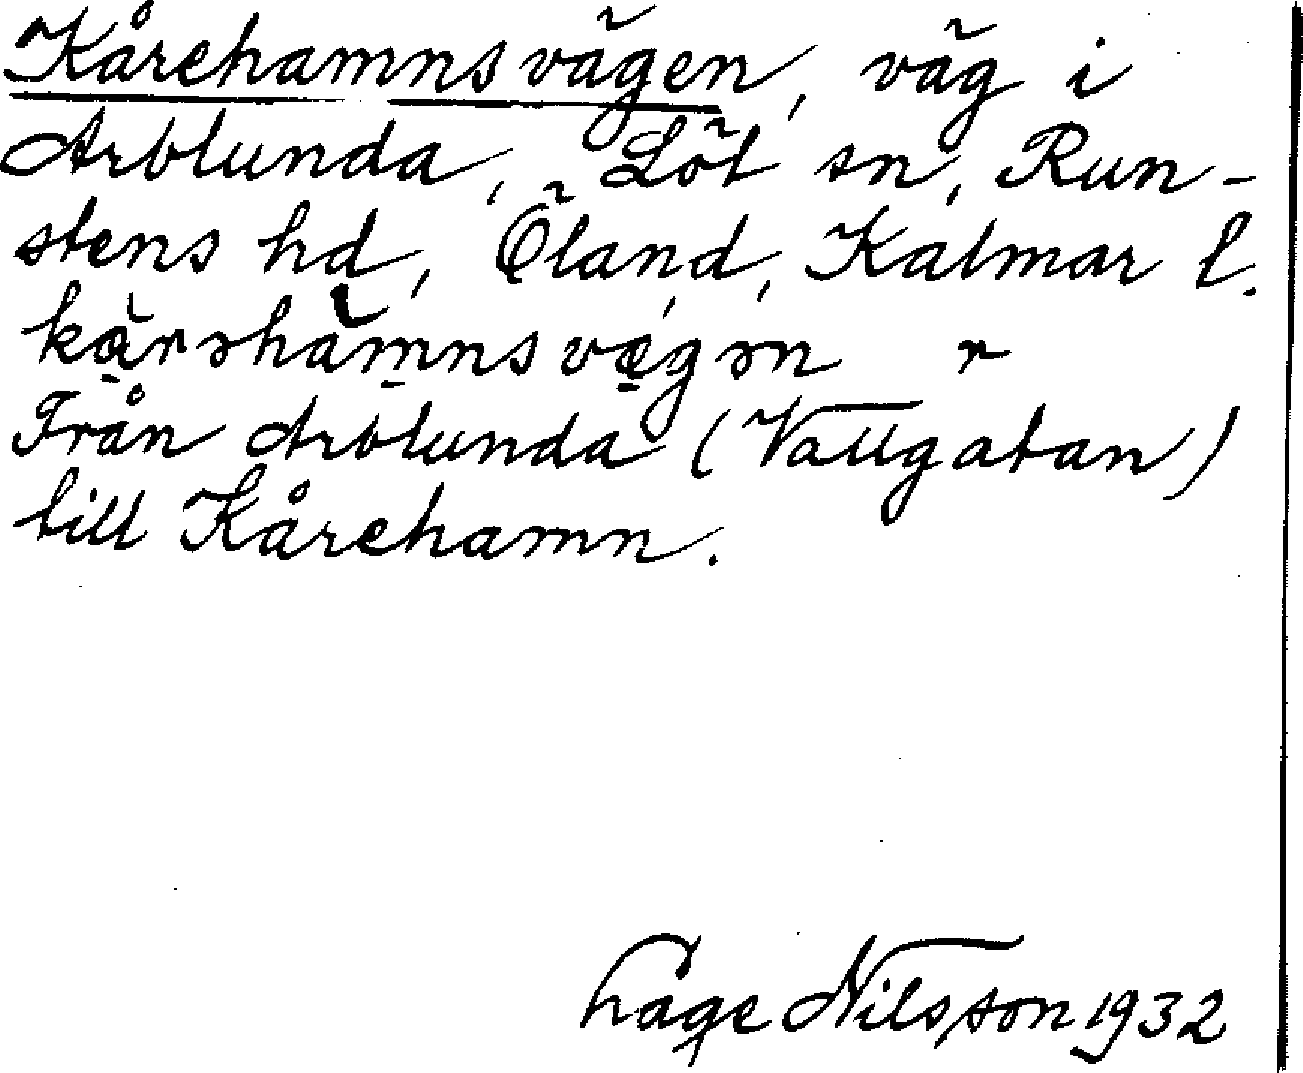 Kårehamnsvägen, väg i
Arblunda, Löt sn, Run-
stens hd, Öland, Kalmar l.
kɑ̀rəhàmnsvægən r
Från Arblunda (Vallgatan)
till Kårehamn.
Låge Nilsson 1932